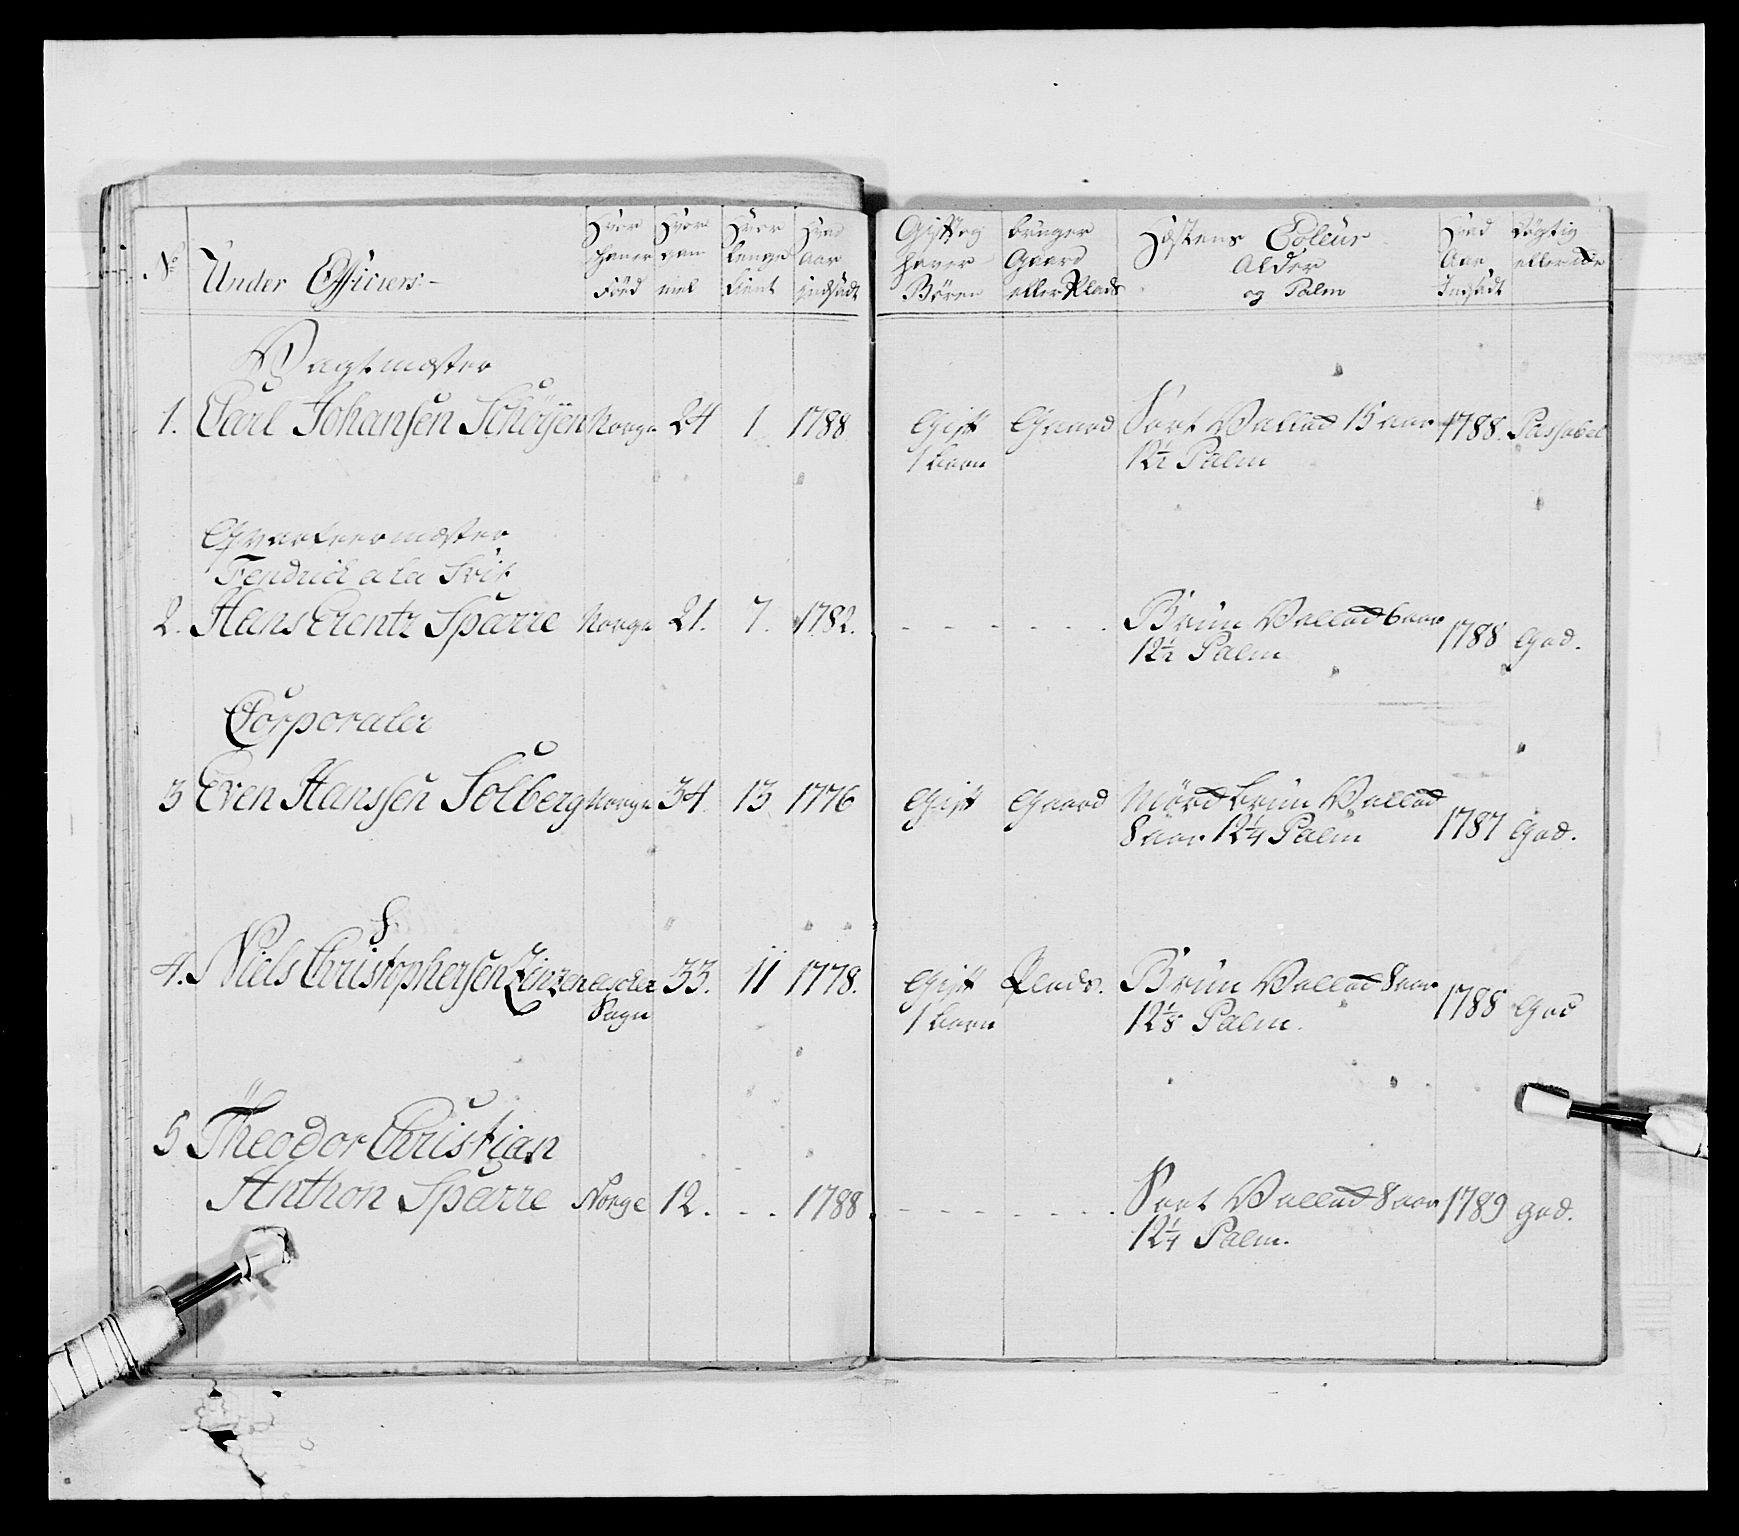 No
Under Officiers.
Hvor
haver
Fød
Hvor
gam
mel
Hvor
længe
tient
Hvad
aar
indsadt
Gift og
haver
Børn
bruger
Gaard
eller Plads
Hæstens Coleur
Alder
og Palm
Hvad
Aar
Indsadt
døgtig
eller
Vagtmæster
1. Carl Johansen Schöyen Norge 24 1 1788 Gift Gaard Sort Vallad 15 aar 1788. Passabel
1 barn 12½ Palm
Qvarteermæster
Fendrich a la Svit
2. Hans Arentz Sparre Norge 21. 7. 1782. Brun Vallad 6 aar 1788 God.
12½ Palm
Corporaler
3 Even Hanssen Solberg Norge 34. 13 1776 Gift Gaard Mørk brun Vallad
8 aar 12¼ Palm 1787 God.
4. Niels Christophersen Zinzen 33. 11 1778. Gift Plads. Brun Vallad 8 aar
Sogn 1 barn 12⅛ Palm. 1788 God
5 Theodor Christian
Anthon Sparre Norge 12. - - 1788 Sort Vallad 8 aar 1789 god.
12¼ Palm.